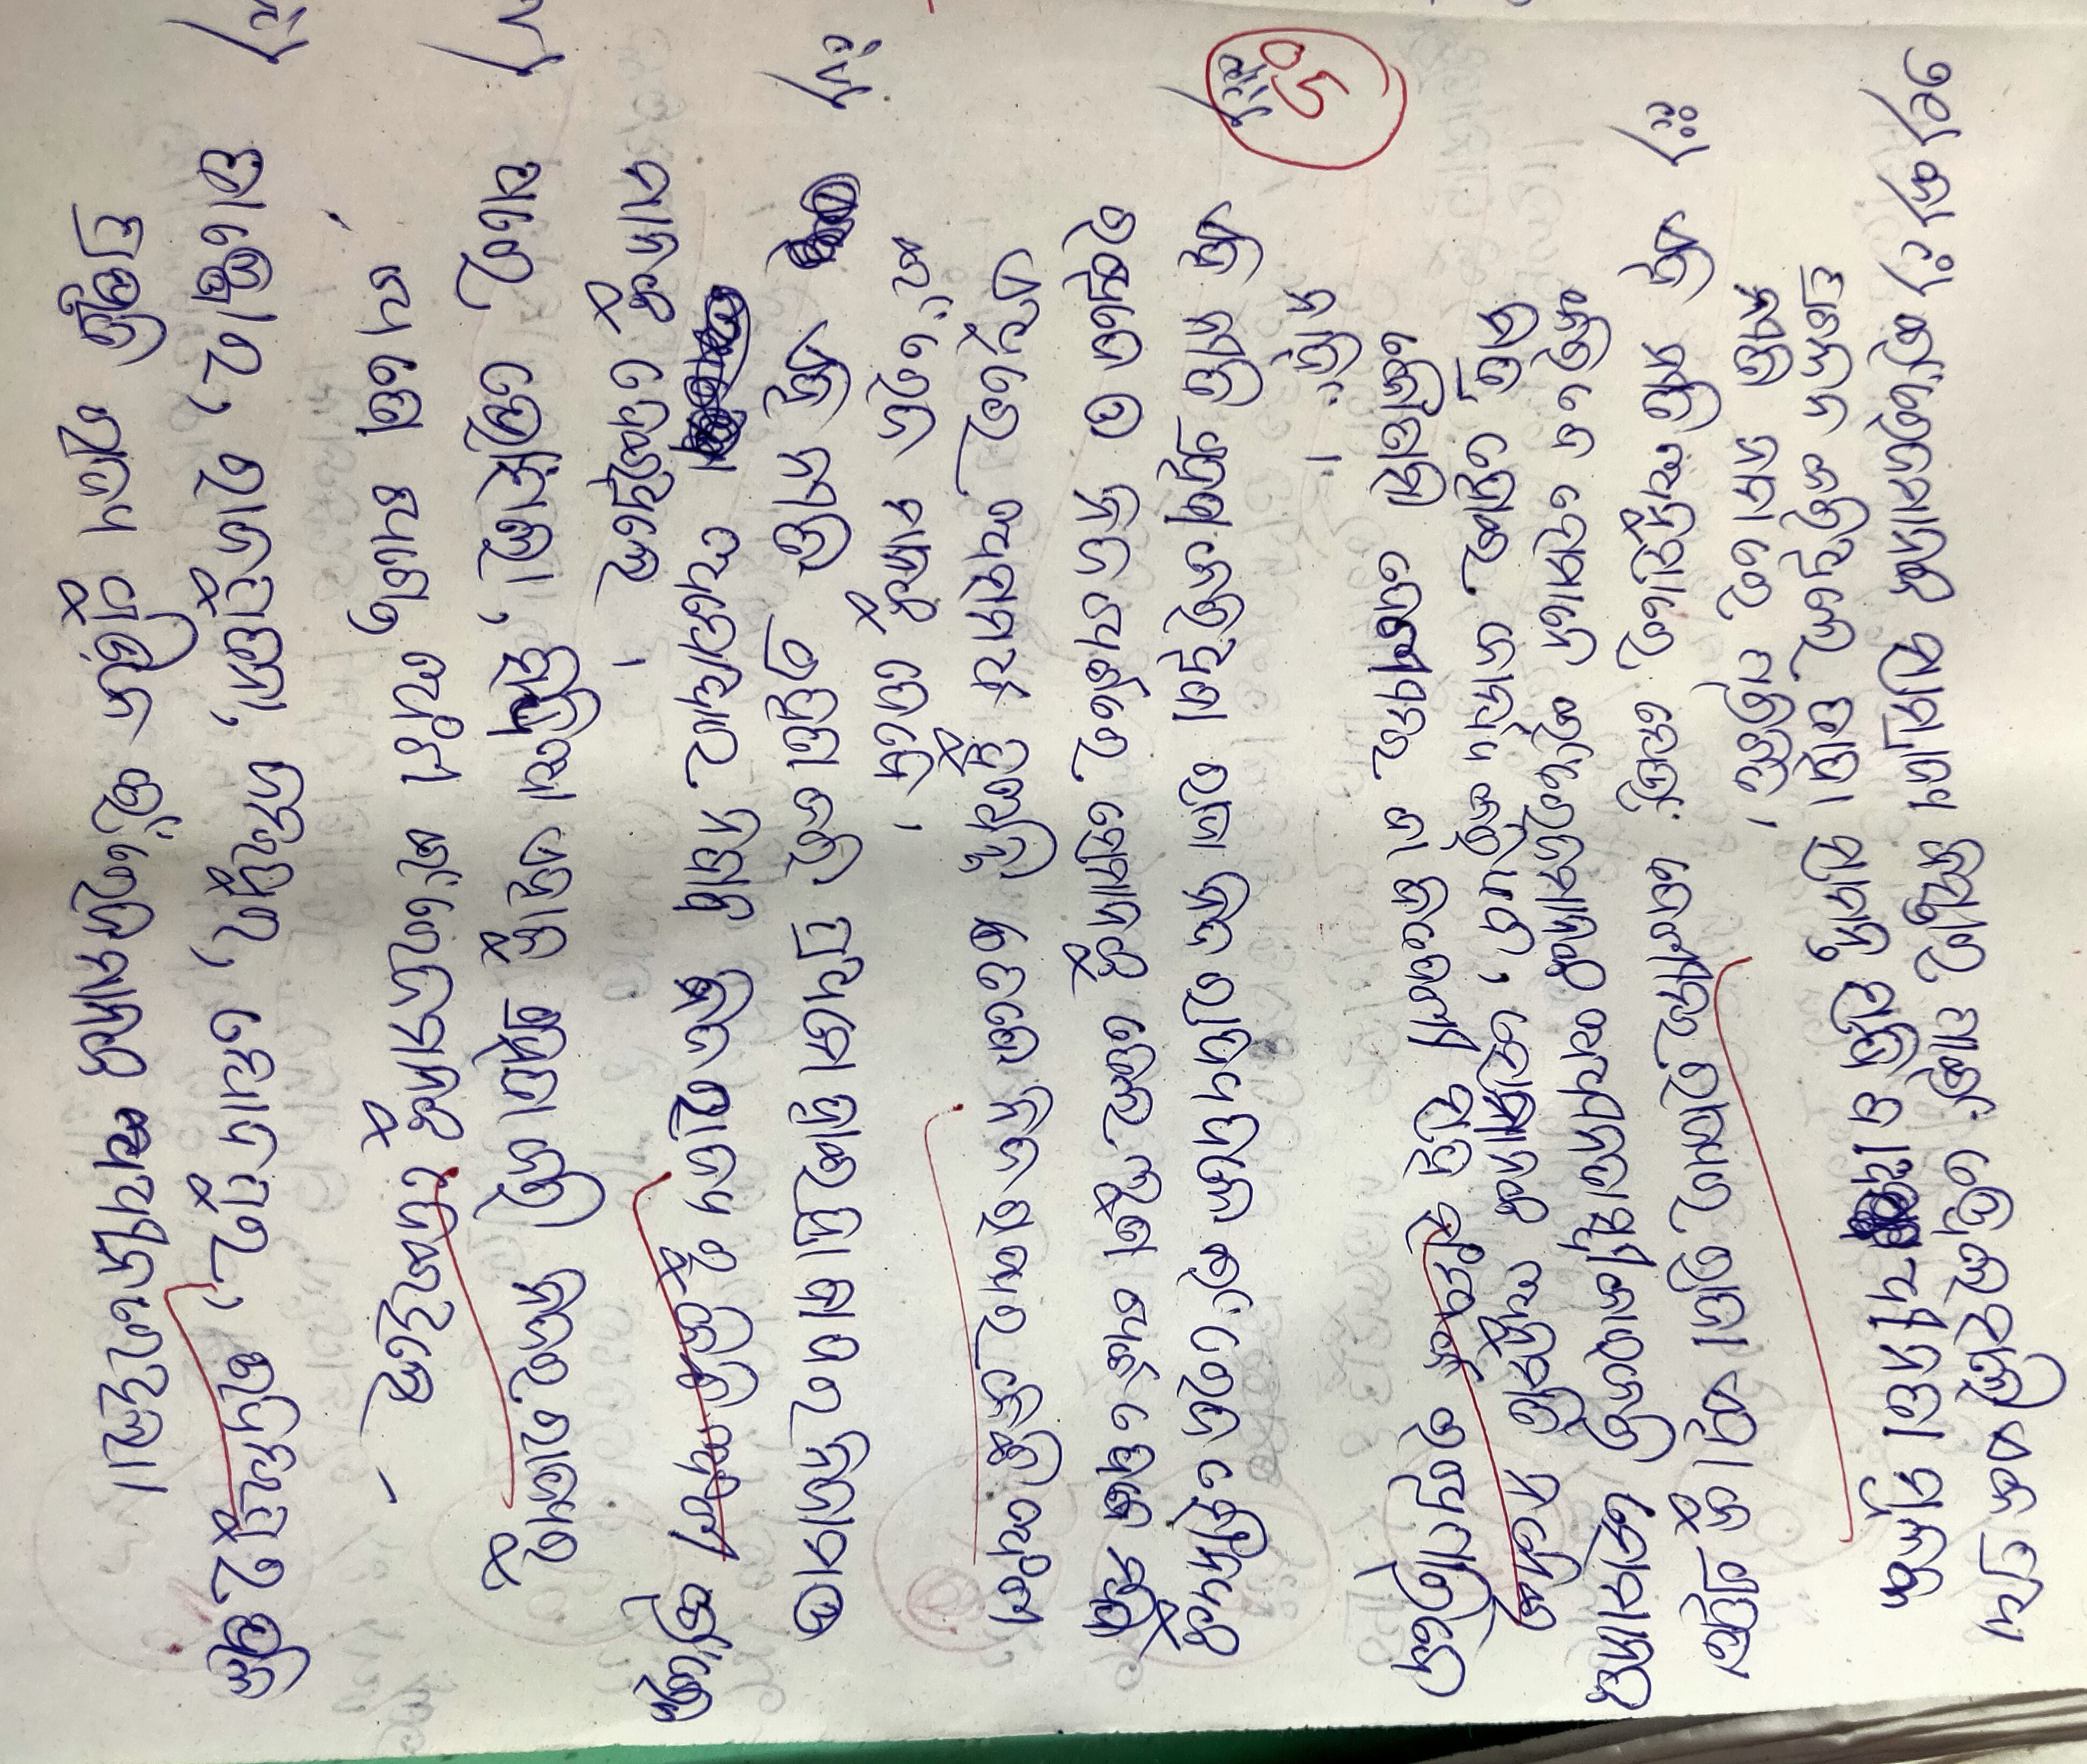 ୨୧) କ) i) ଇଂରେଜମାନଙ୍କ ସାମ୍ରାଜ୍ୟ ବିସ୍ତାର ପାଇଁ ୱେଲେସଲି ଏକ ପ୍ରଥା
ପ୍ରଚଳନ କରିଥିଲେ ତାହା ସାମନ୍ତ ସନ୍ଧି ବା ଅଧୀନତା ମୂଳକ
ନୀତି ନାମରେ ପରିଚିତ ।
ii) ଏହି ନୀତି ଅନୁସାରେ ଯେଉଁ ଦେଶୀୟ ରାଜ୍ୟର ରାଜା ଏହାକୁ ଗ୍ରହଣ
କରିବେ ସେମାନେ ଇଂରେଜମାନଙ୍କ ଅଧୀନତା ସ୍ୱୀକାର କରି ସେମାନଙ୍କ
ମିତ୍ର ହୋଇ କାର୍ଯ୍ୟ କରିବେ, ସେମାନଙ୍କ ଅନୁମତି ନନେଇ
କୌଣସି ଦେଶୀୟ ବା ବିଦେଶୀ ସହ ସଂମ୍ପର୍କ ରଖିପାରିବେ
ନାହିଁ ।
05
iii) ଏହି ନୀତି ଗ୍ରହଣ କରିଥିବା ରାଜା ନିଜ ରାଜ୍ୟରେ ଇଂରେଜ ସୈନ୍ୟଙ୍କୁ
ରଖିବେ ଓ ନିଜ ଖର୍ଚ୍ଚରେ ସେମାନଙ୍କୁ ତେଲ ଲୁଣ ଖର୍ଚ୍ଚ ଦେବେ ଯଦି
ଏଥିରେ ଅସମର୍ଥ ହୁଅନ୍ତି ତେବେ ନିଜ ରାଜ୍ୟର କିଛି ଅଂଶ
ଇଂରେଜ ମାନଙ୍କୁ ଦେବେ ।
iv) ଏହି ନୀତି ଗ୍ରହଣ କରି ପ୍ରଥମେ ହାଇଦ୍ରାବାଦର ନିଜାମ ଓ
ଅଯୋଧ୍ୟାର ନବାବ ନିଜ ରାଜ୍ୟ ରୁ କିଛି ଅଂଶ ଇଂରେଜ
ମାନଙ୍କୁ ଦେଇଥିଲେ ।
v) ପରେ ଭୋଁସଲା, ସିନ୍ଧିଆ ଏହାକୁ ଗ୍ରହଣ କରି ନିଜର ରାଜ୍ୟରୁ
ଖଣ୍ଡେ ଖଣ୍ଡେ ଅଂଶ ଇଂରେଜମାନଙ୍କୁ ଦେଇଥିଲେ ।
ତାଞ୍ଜୋର, ରାଜପୁତନା, ଜୟପୁର, ଯୋଧପୁର, ଉଦୟପୁର ଭଳି
ପ୍ରଭୃତି ରାଜ୍ୟ ଗୁଡ଼ିକ ଇଂରେଜମାନଙ୍କ ଅଧୀନରେ ଥିଲା ।